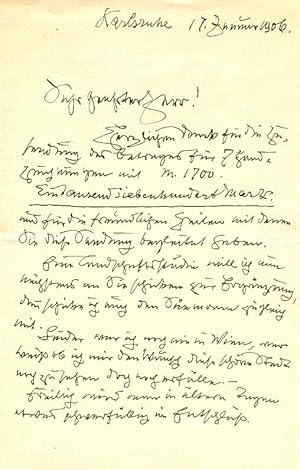 Karlsruhe 17. Januar 1906.
Sehr geehrter Herr!
Herzlichen Dank für die Zu-
sendung des Betrages für 7 Hand-
zeichnungen mit M. 1700.
Eintausendsiebenhundert Mark
und für die freundlichen Zeilen mit denen
Sie diese Sendung begleitet haben.
Eine Landschaftsstudie will ich nun
nächstens an Sie schicken zur Ergänzung,
dann schicke ich auch den zugleich
mit.
Leider war ich noch nie in Wien, wer
weiß ob ich mir den Wunsch diese schöne Stadt
noch zu sehen doch noch erfülle. —
Freilich wird man in alten Tagen
etwas schwerfällig im Entschluß.